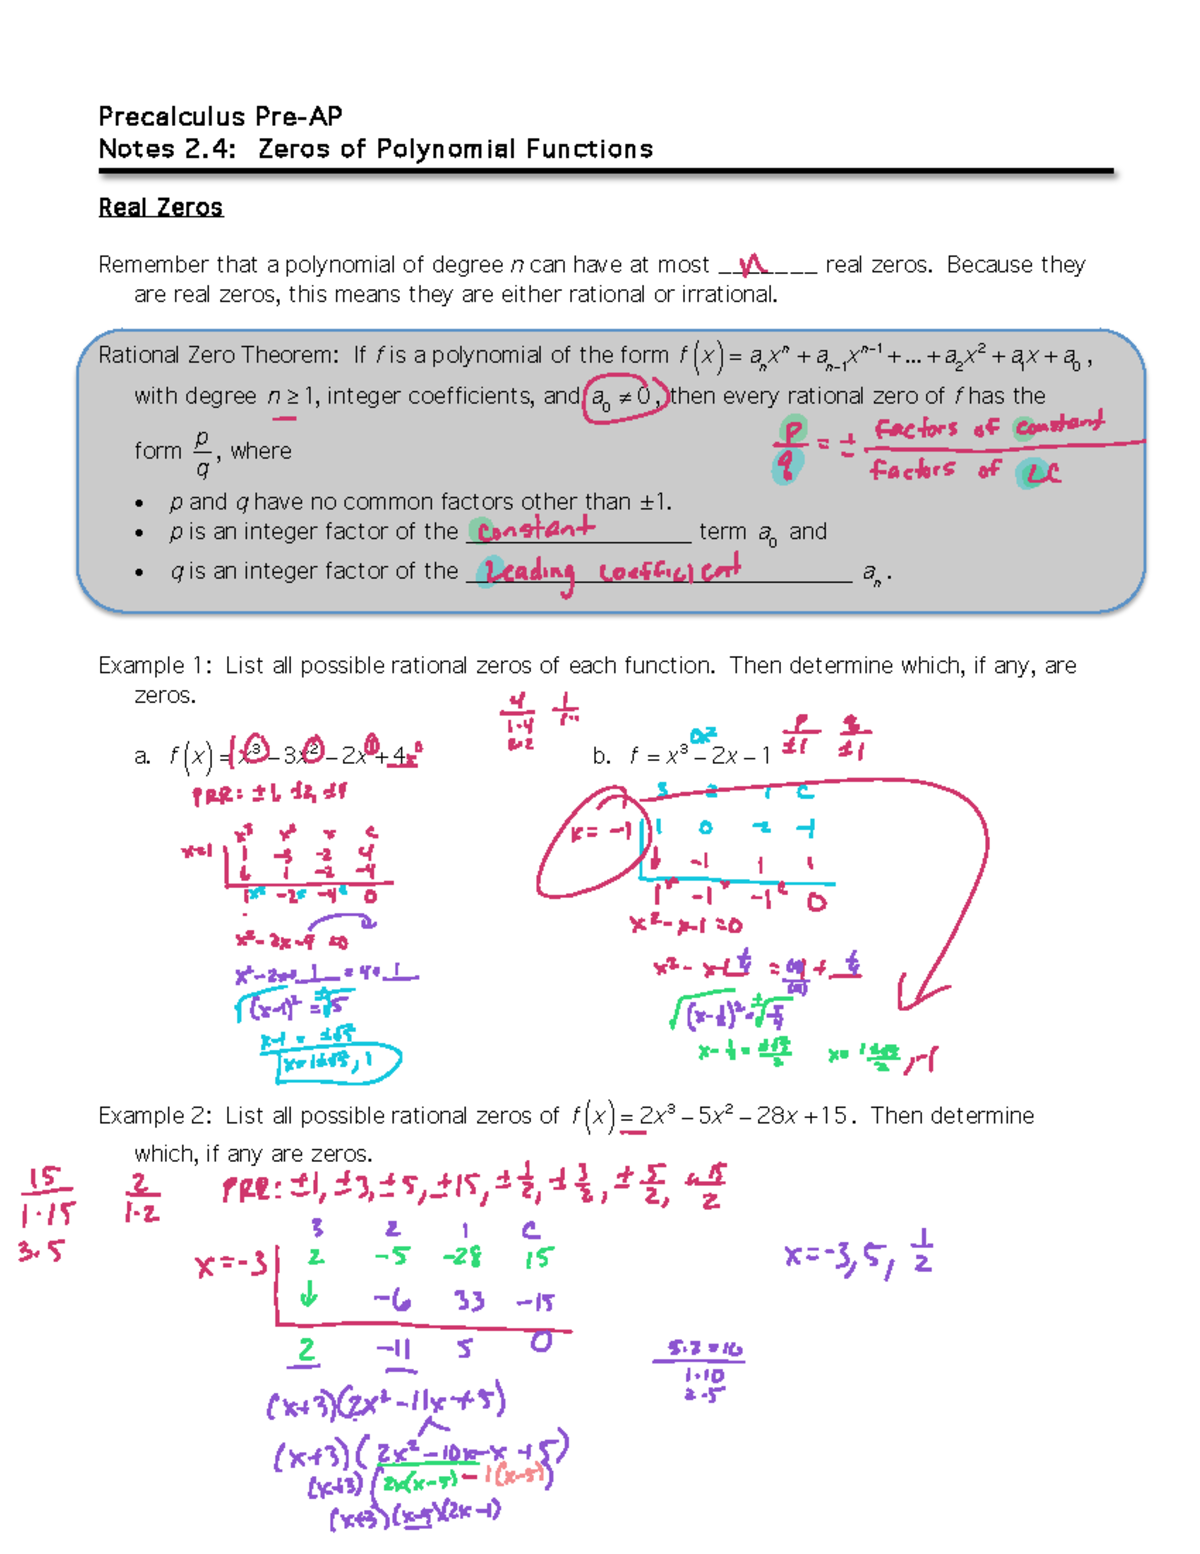 Precalculus Pre-AP
Notes 2.4: Zeros of Polynomial Functions
Real Zeros
Remember that a polynomial of degree n can have at most n real zeros. Because they
are real zeros, this means they are either rational or irrational.
Rational Zero Theorem: If f is a polynomial of the form f(x) = aₙxⁿ + aₙ₋₁xⁿ⁻¹ + ... + a₂x² + a₁x + a₀ ,
with degree n ≥ 1, integer coefficients, and a₀ ≠ 0, then every rational zero of f has the
form p/q, where
p/q = ± factors of constant / factors of LC
• p and q have no common factors other than ±1.
• p is an integer factor of the constant term a₀ and
• q is an integer factor of the Leading coefficient aₙ.
Example 1: List all possible rational zeros of each function. Then determine which, if any, are
zeros.
4 / 1·4 2·2
a. f(x) = x³ – 3x² – 2x + 4
PRR: ±1, ±2, ±4
x³ x² x c
x=1 1 -3 -2 4
1 -2 -4
1 -2 -4 0
x² - 2x - 4 = 0
x² - 2x + 1 = 4 + 1
(x-1)² = ±√5
x-1 = ±√5
x = 1±√5, 1
b. f = x³ – 2x – 1
0x²
p/±1 q/±1
3 2 1 c
x = -1 1 0 -2 -1
-1 1 1
1 -1 -1 0
x² - x - 1 = 0
x = 1±√5/2, -1
Example 2: List all possible rational zeros of f(x) = 2x³ – 5x² – 28x + 15. Then determine
which, if any are zeros.
15 / 1·15 3·5
2 / 1·2
PRR: ±1, ±3, ±5, ±15, ±1/2, ±3/2, ±5/2, ±15/2
3 2 1 c
x = -3 2 -5 -28 15
-6 33 -15
2 -11 5 0
x = -3, 5, 1/2
1·10
2·5
(x+3)(2x² - 11x + 5)
(x+3)(2x² - 10x - x + 5)
(x+3)(2x(x-5) - 1(x-5))
(x+3)(x-5)(2x-1)